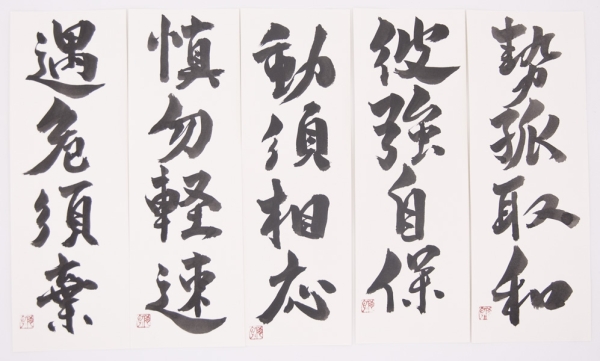 遇危須棄
慎勿軽速
動須相応
彼強自保
勢孤取和